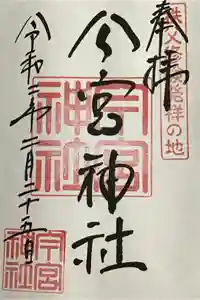 奉拝
秩父修験発祥の地
今宮神社
今宮神社
令和三年二月二十五日
今宮神社